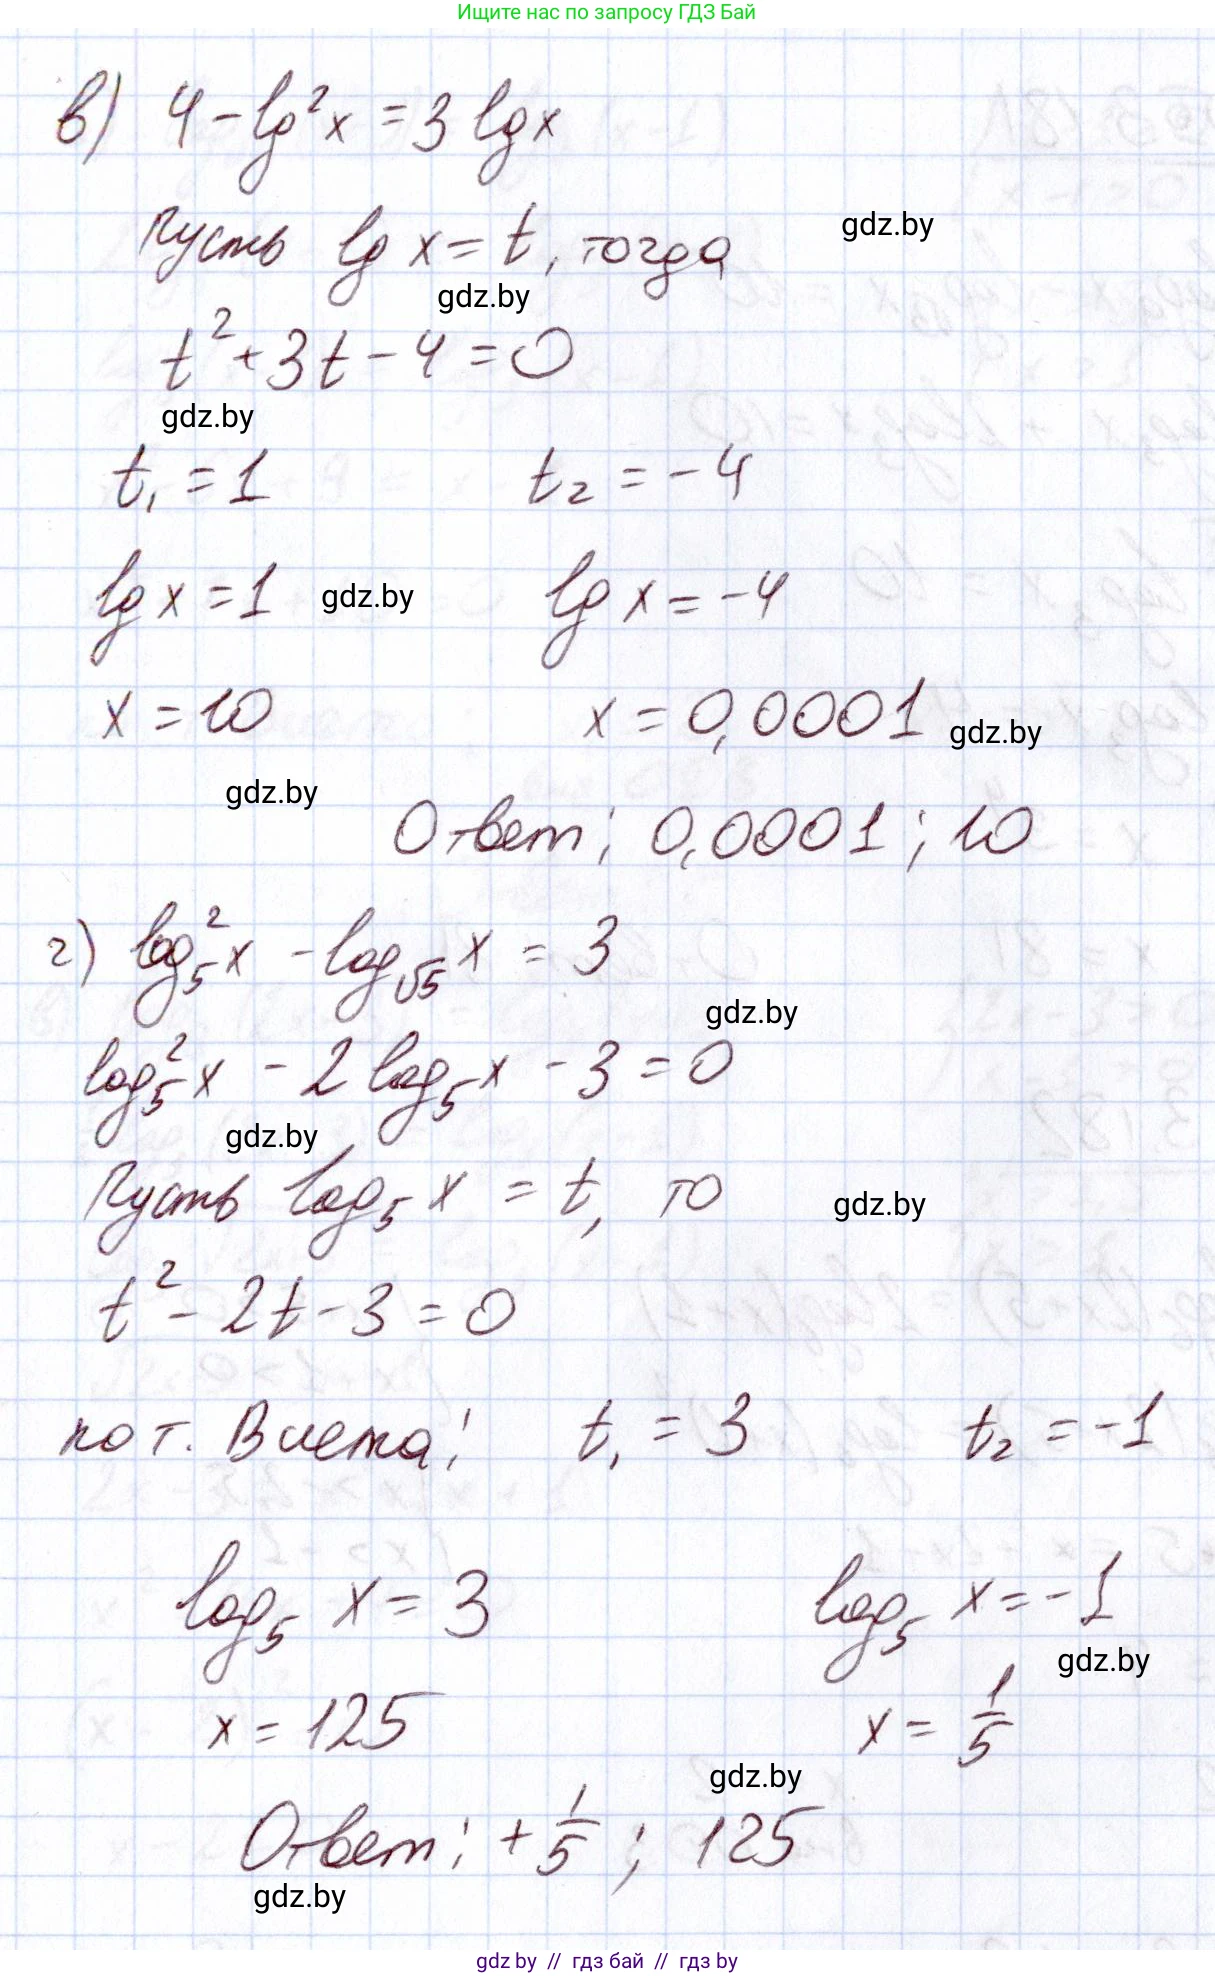 Ищите нас по запросу ГДЗ Бай
в) 4 - lg²x = 3 lg x
Пусть lg x = t, тогда
gdz.by
gdz.by
t² + 3t - 4 = 0
gdz.by
t₁ = 1 t₂ = -4
lg x = 1 gdz.by lg x = -4
x = 10 x = 0,0001 gdz.by
gdz.by
Ответ: 0,0001; 10
г) log₅²x - log_√5 x = 3
gdz.by
log₅²x - 2 log₅x - 3 = 0
gdz.by
Пусть log₅ x = t, то gdz.by
t² - 2t - 3 = 0
по т. Виета: t₁ = 3 t₂ = -1
log₅ x = 3 log₅ x = -1
gdz.by
x = 125 x = 1/5
gdz.by
Ответ: + 1/5; 125
gdz.by
gdz by // гдз бай // гдз by